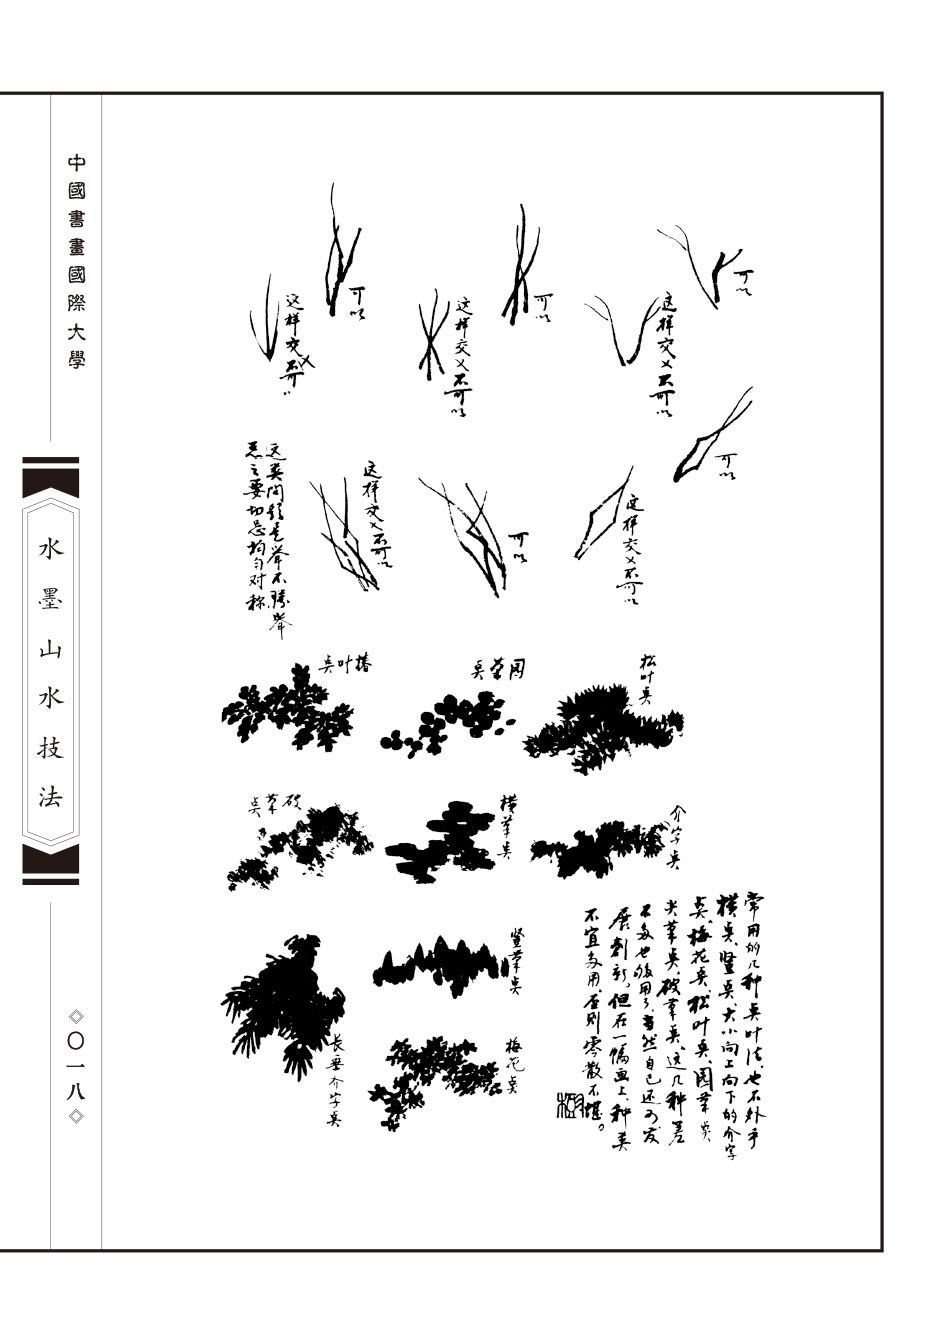 中國書畫國際大學
水墨山水技法
〇一八
可以
可以
可以
这样交叉不可以
这样交叉不可以
这样交叉不可以
可以
这样交叉不可以
可以
这样交叉不可以
这类问题是举不胜举
总之要切忌均匀对称
松叶点
圆葉点
椿叶点
介字点
横葉点
破葉点
竖葉点
梅花点
长垂介字点
常用的几种点叶法,也不外乎
横点、竖点、大小向上向下的介字
点、梅花点、松叶点、圆葉点、
尖葉点、破葉点、这几种差
不多也够用了,当然自己还可发
展创新。但在一幅画上,种类
不宜多用,否则零散不堪。